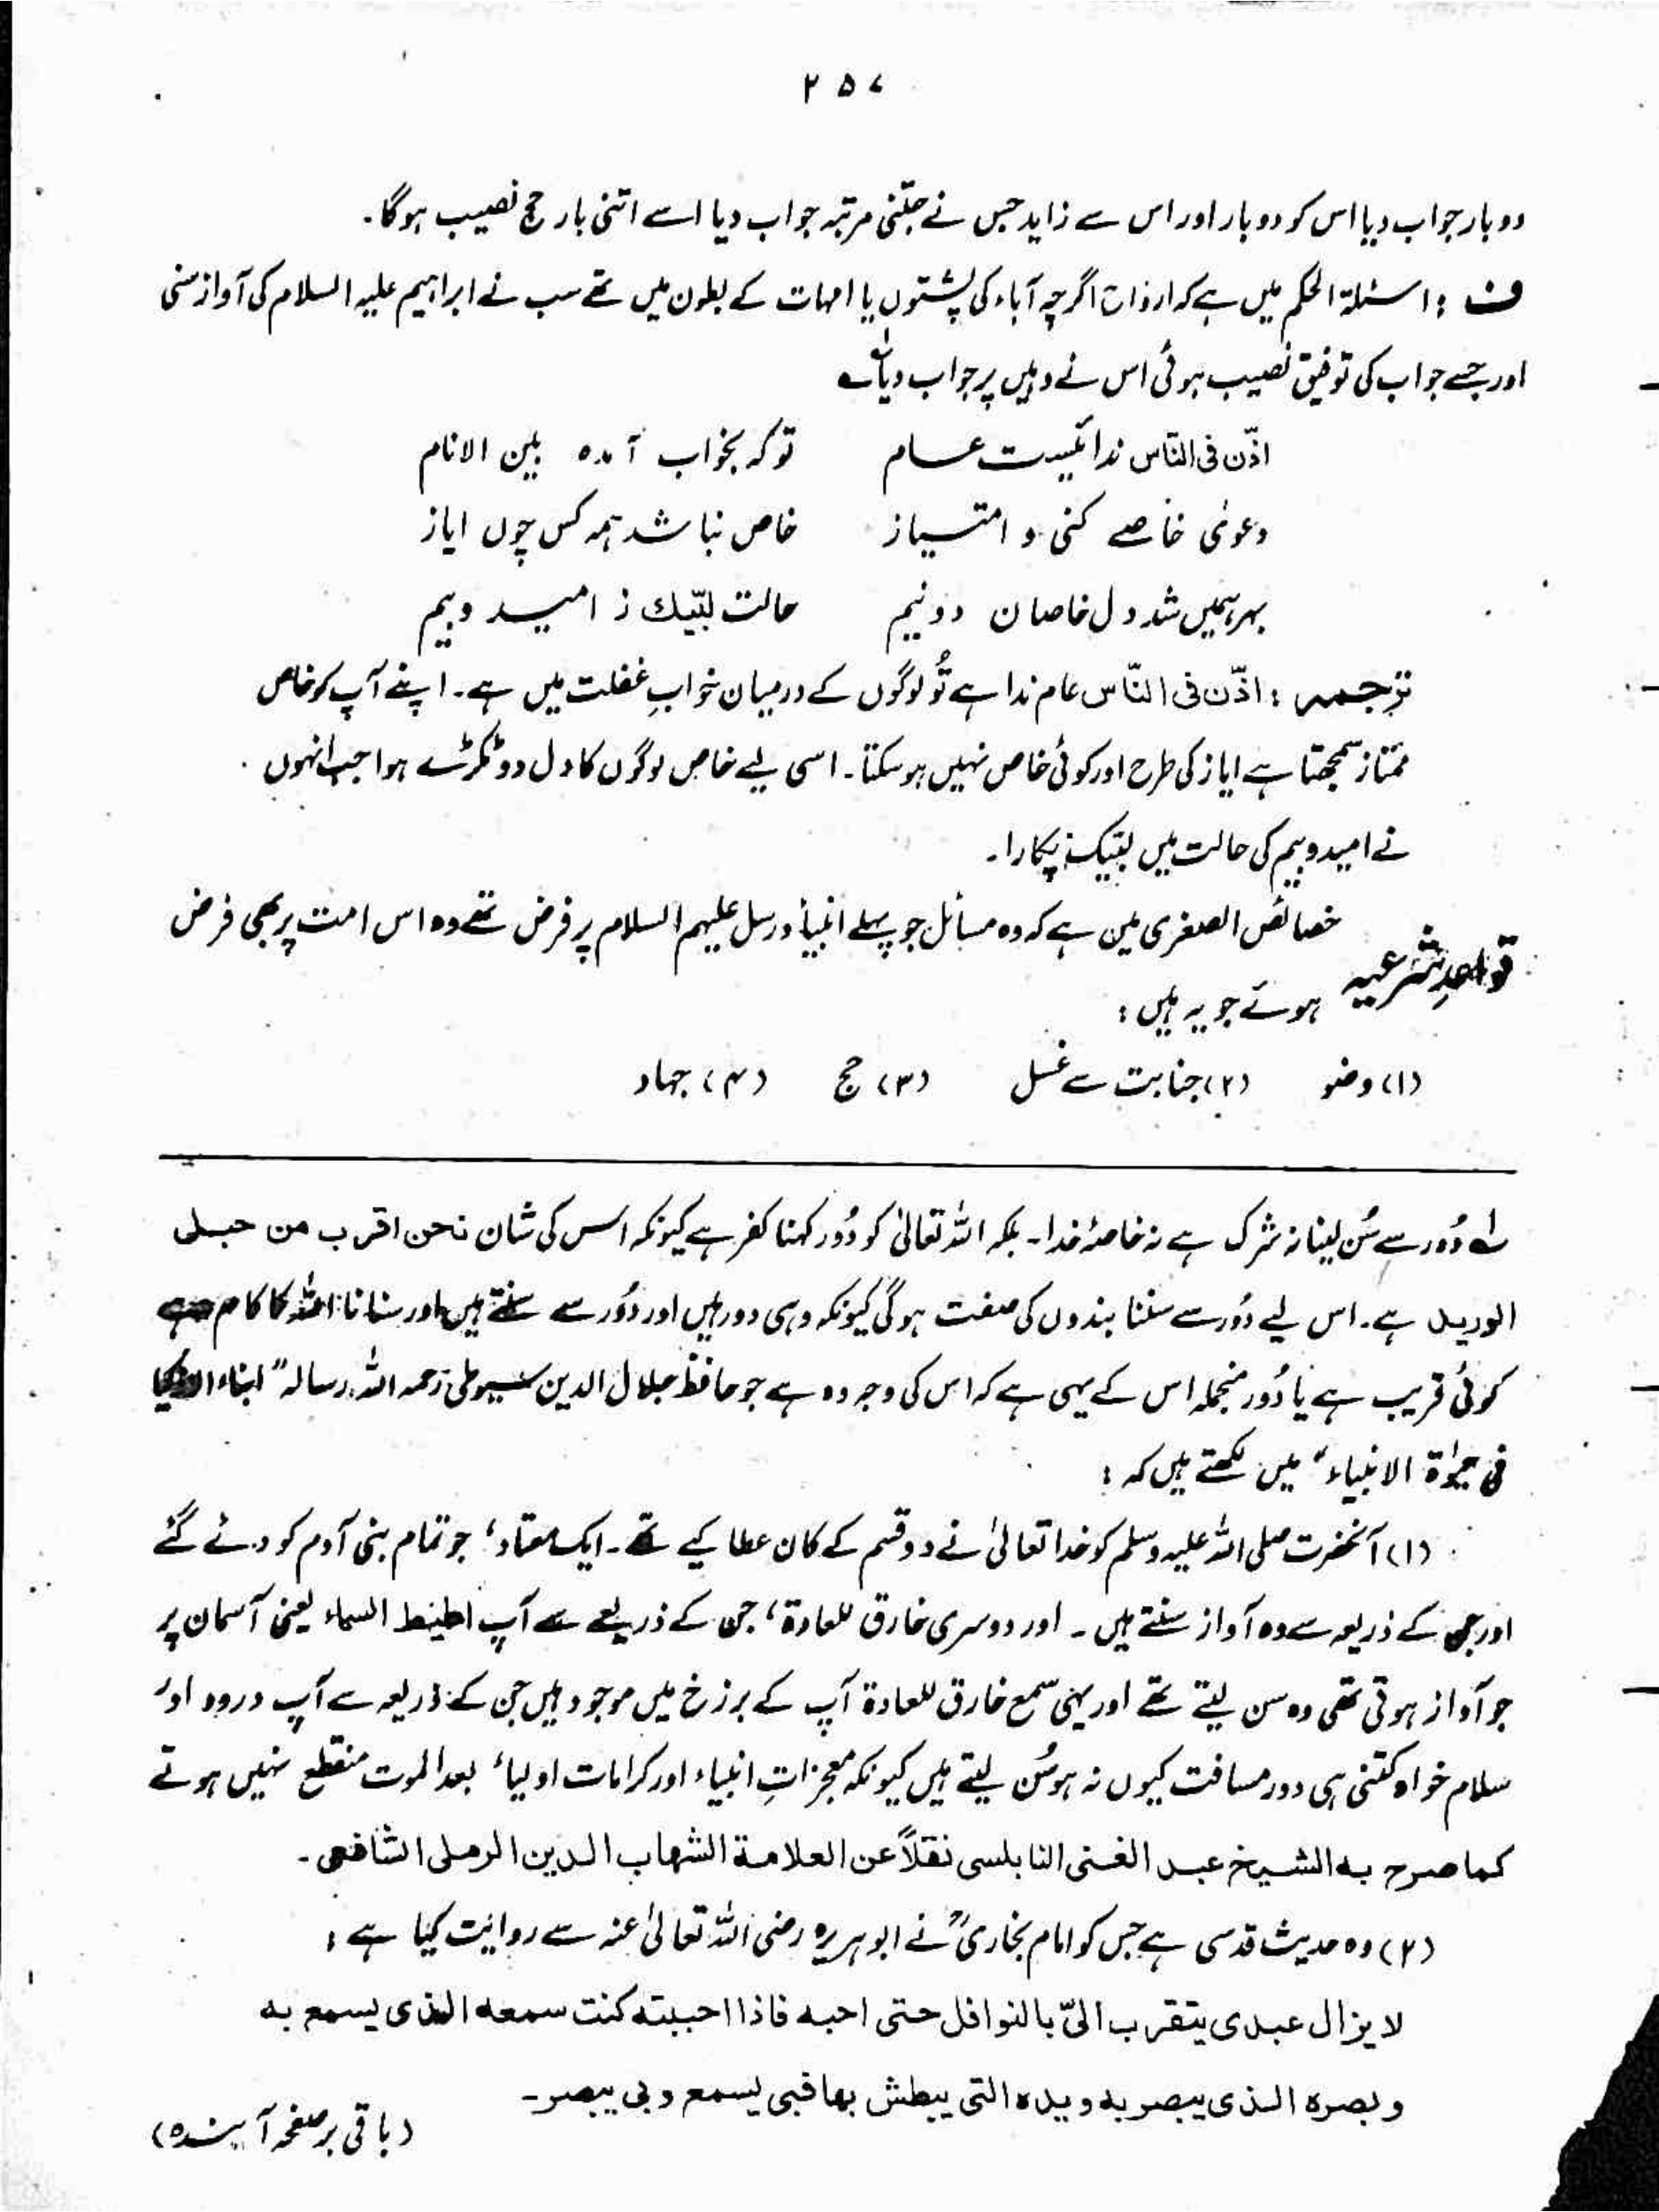 ۲۵۷
دو بار جواب دیا اس کو دو بار اور اس سے زاید جس نے جتنی مرتبہ جواب دیا اسے اتنی بار حج نصیب ہوگا۔
ف : اسئلۃ الحکم میں ہے کہ ارواح اگرچہ آباء کی پشتوں یا امہات کے بطون میں تھے سب نے ابراہیم علیہ السلام کی آواز سنی
اور جسے جواب کی توفیق نصیب ہوئی اس نے وہیں پر جواب دیا؎
اذّن فی النّاس ندائیست عام توکہ بخواب آمدہ بین الانام
دعوئ خاصے کنی و امتیاز خاص نباشد ہمہ کس چوں ایاز
بہر ہمیں شد دل خاصان دو نیم حالت لبّیك ز امید و بیم
ترجمہ : اذّن فی النّاس عام ندا ہے تُو لوگوں کے درمیان خوابِ غفلت میں ہے۔ اپنے آپ کو خاص
ممتاز سمجھتا ہے ایاز کی طرح اور کوئی خاص نہیں ہو سکتا۔ اسی لیے خاص لوگوں کا دل دو ٹکڑے ہوا جب انہوں
نے امید و بیم کی حالت میں لبّیک پکارا۔
قواعدِ شرعیہ خصائص الصغری میں ہے کہ وہ مسائل جو پہلے انبیأ و رسل علیہم السلام پر فرض تھے وہ اس امت پر بھی فرض
ہوئے جو یہ ہیں :
(۱) وضو (۲) جنابت سے غسل (۳) حج (۴) جہاد
لے دُور سے سُن لینا نہ شرک ہے نہ خاصۂ خدا۔ بلکہ اللہ تعالیٰ کو دُور کہنا کفر ہے کیونکہ اس کی شان نحن اقرب من حبل
الورید ہے۔ اس لیے دُور سے سننا بندوں کی صفت ہوگی کیونکہ وہی دور ہیں اور دُور سے سنتے ہیں اور سنانا اللہ کا کام ہے
کوئی قریب ہے یا دُور منجملہ اس کے یہی ہے کہ اس کی وجہ وہ ہے جو حافظ جلال الدین سیوطی رحمہ اللہ رسالہ "ابناء الاذکیا
فی حیٰوۃ الانبیاء" میں لکھتے ہیں کہ :
(۱) آنحضرت صلی اللہ علیہ وسلم کو خدا تعالیٰ نے دو قسم کے کان عطا کیے تھے۔ ایک معتاد، جو تمام بنی آدم کو دئے گئے
اور جس کے ذریعہ سے وہ آواز سنتے ہیں۔ اور دوسری خارق للعادۃ، جن کے ذریعے سے آپ اطیط السماء یعنی آسمان پر
جو آواز ہوتی تھی وہ سن لیتے تھے اور یہی سمع خارق للعادۃ آپ کے برزخ میں موجود ہیں جن کے ذریعہ سے آپ درود اور
سلام خواہ کتنی ہی دور مسافت کیوں نہ ہو سُن لیتے ہیں کیونکہ معجزاتِ انبیاء اور کرامات اولیاء بعد الموت منقطع نہیں ہوتے
کما صرح به الشیخ عبد الغنی النابلسی نقلاً عن العلامة الشهاب الدین الرملی الشافعی۔
(۲) وہ حدیث قدسی ہے جس کو امام بخاریؒ نے ابو ہریرہ رضی اللہ تعالیٰ عنہ سے روایت کیا ہے :
لا یزال عبدی یتقرب الیّ بالنوافل حتی احبه فاذا احببته کنت سمعه الذی یسمع به
و بصره الذی یبصر به و یده التی یبطش بها فبی یسمع و بی یبصر۔
(باقی بر صفحہ آیندہ)